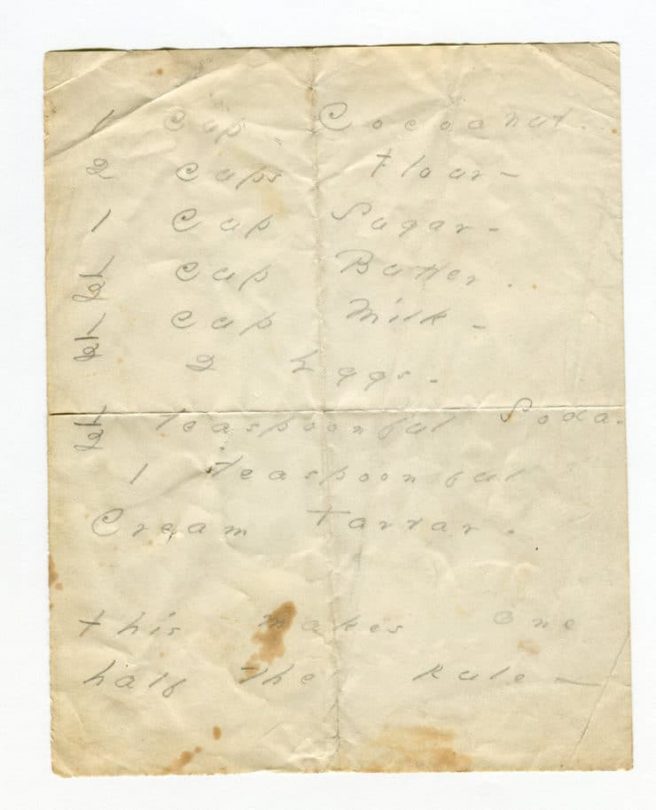 1 Cup. Cocoanut.
2 Cups Flour -
1 Cup Sugar -
Cup Butter ..
Cup Milk -
2 Eggs -
teaspoonful Soda.
1 teaspoonful
Cream Tartar.
this makes one
half the Rule -